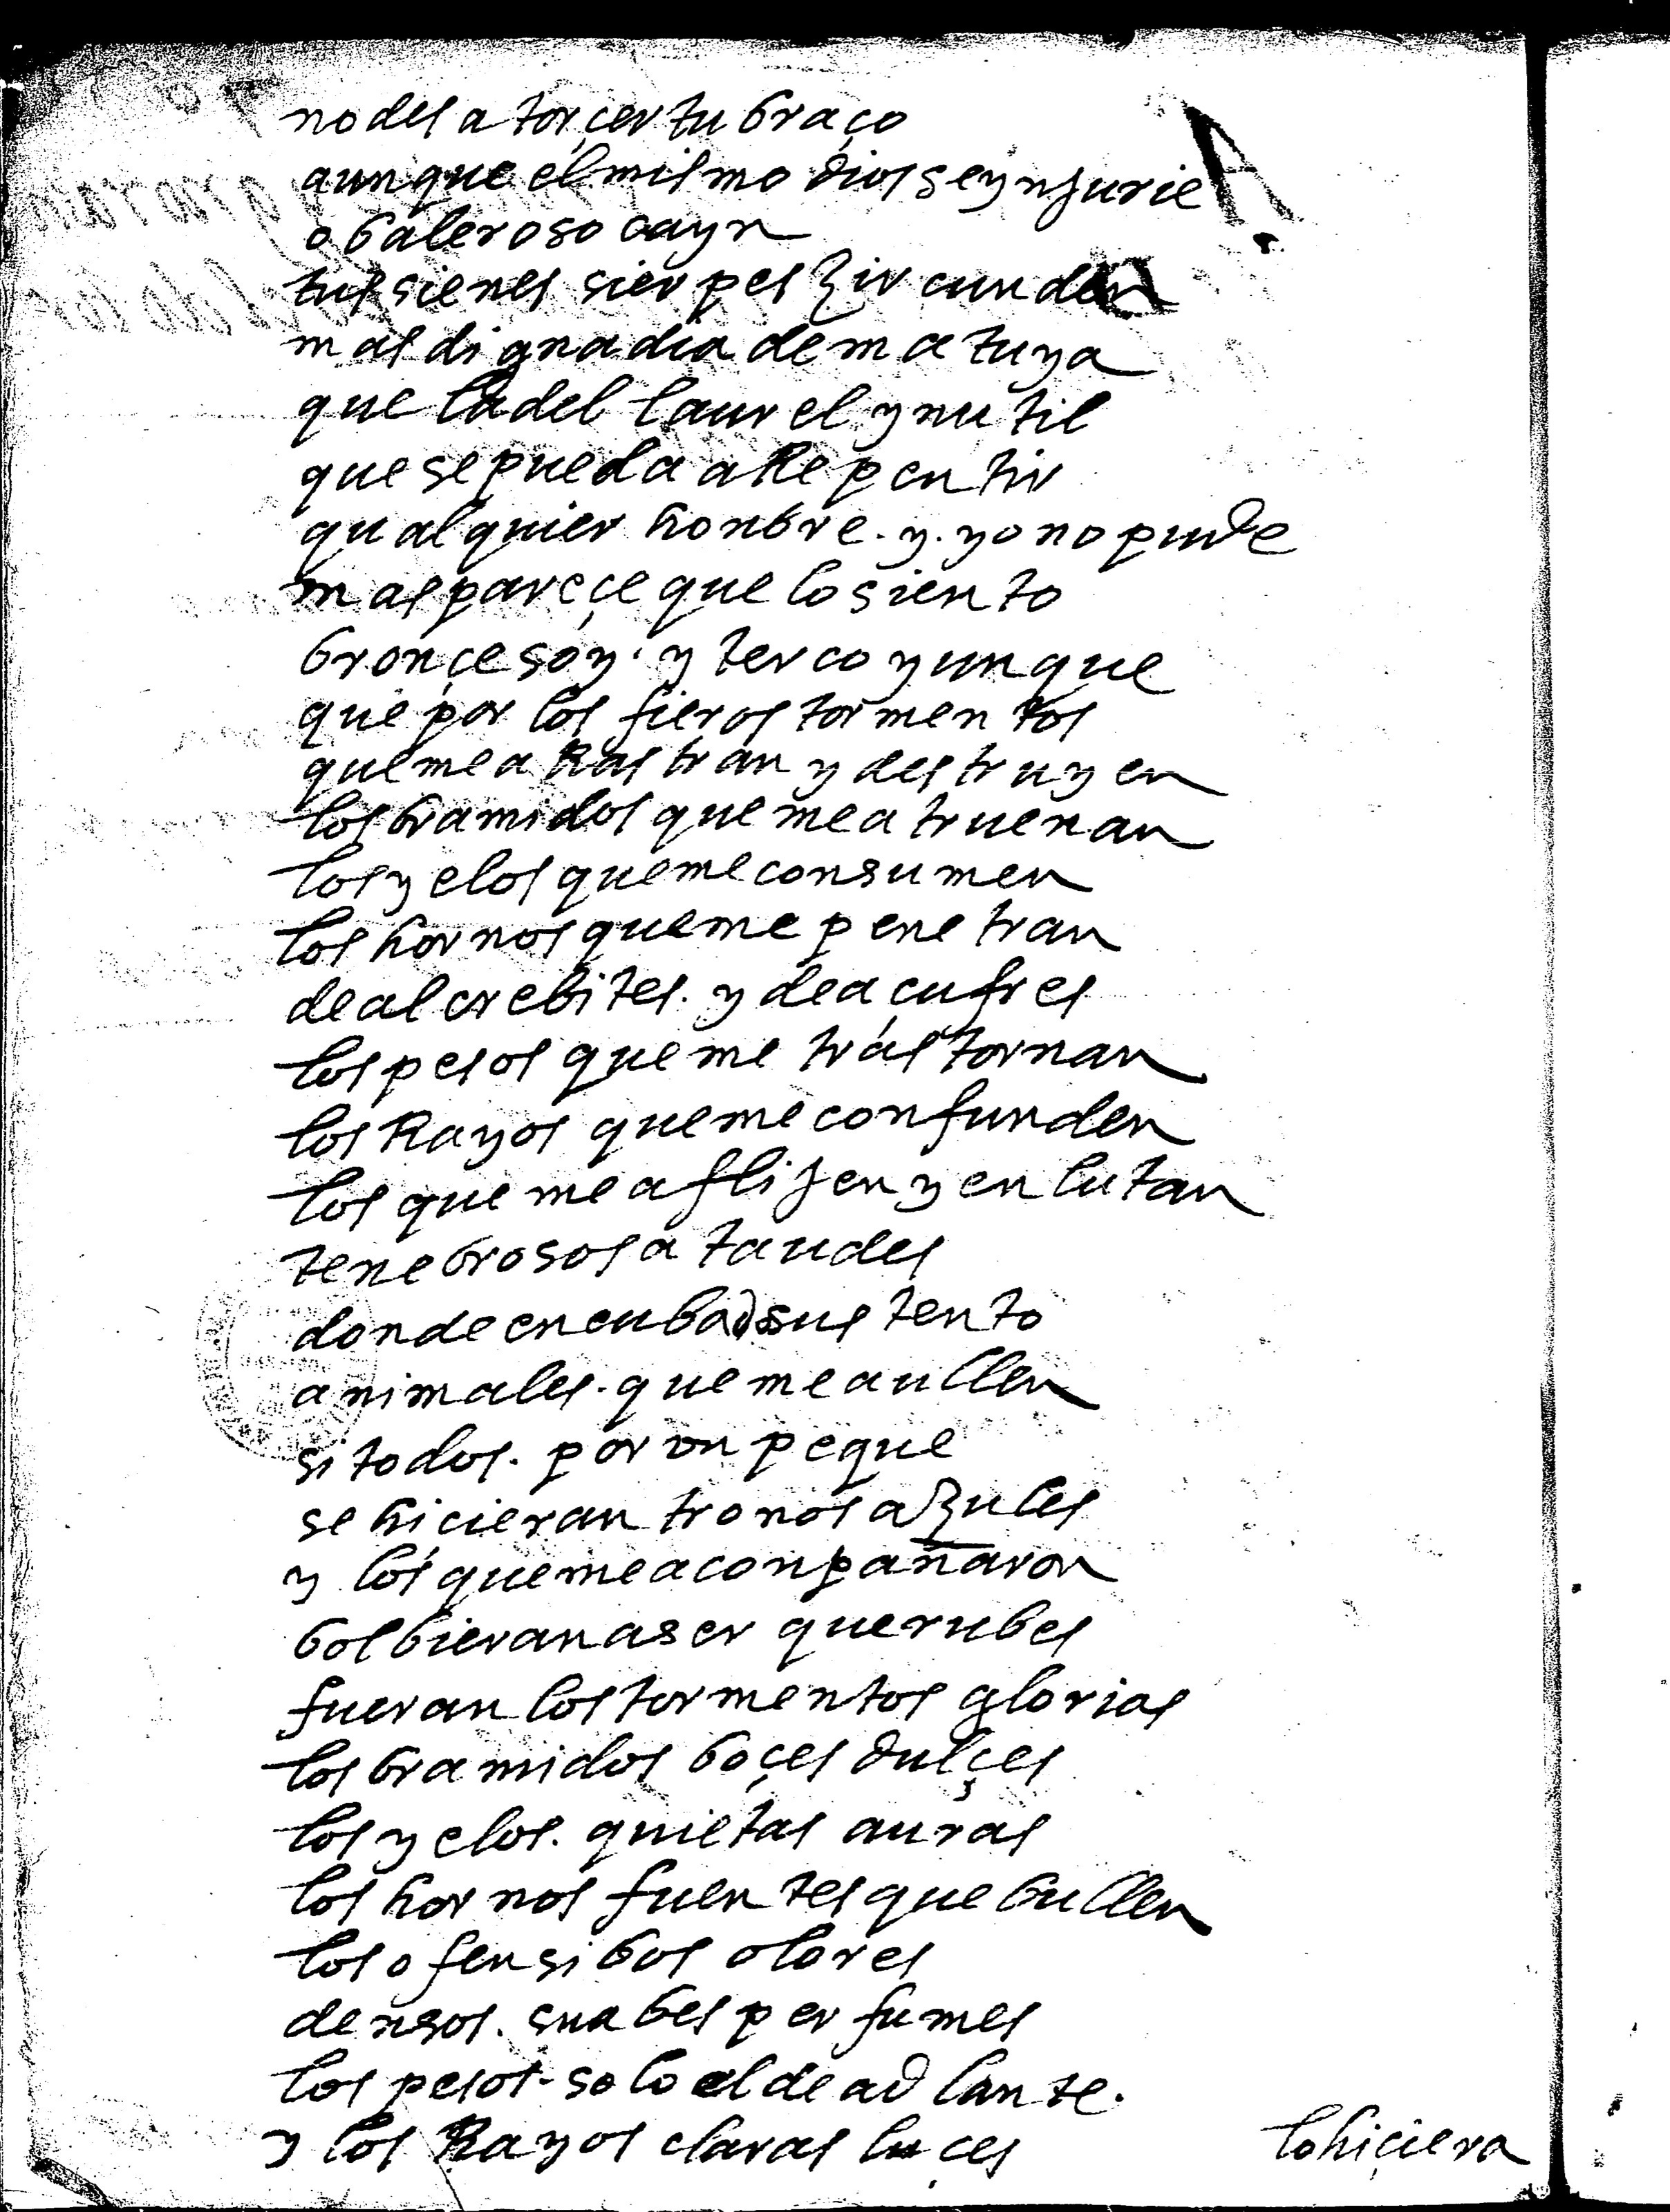 no des a torçer tu braço
aunque el mismo dios se ynjurie
o baleroso cayn
tus sienes sierpes zircunden
mas digna diadema tuya
que la del laurel ynutil
que se pueda aRepentir
qualquier honbre. y. yo no pude
mas pareçe que lo siento
bronçe soy. y terco yunque
que por los fieros tormentos
que me aRastran y destruyen
los bramidos que me atruenan
los yelos que me consumen
los hornos que me penetran
de alcrebites. y de açufres
los pesos que me trastornan
los Rayos que me confunden
los que me aflijen y enlutan
tenebrosos ataudes
donde encubado sustento
animales. que me aullen
si todos. por un peque
se hicieran tronos azules
y los que me aconpañaron
bolbieran a ser querubes
fueran los tormentos glorias
los bramidos boçes dulçes
los yelos. quietas auras
los hornos fuentes que bullen
los ofensibos olores
densos. suabes perfumes
los pesos. solo el de adlante.
y los Rayos claras luces
lo hiçiera